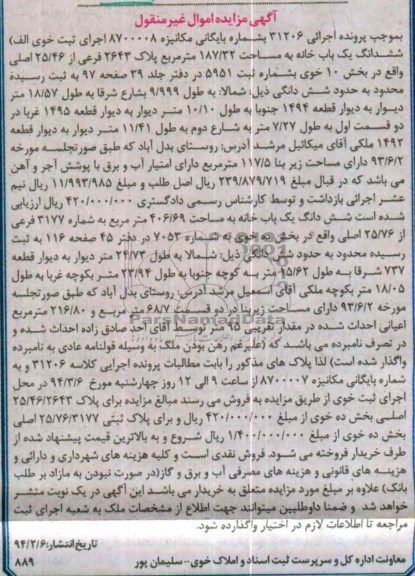 آگهی مزایده اموال غیر منقول
بموجب پرونده اجرائی ۳۱۲۰۶ بشماره بایگانی مکانیزه ۸۷۰۰۰۰۸ اجرای ثبت خوی الف)
ششدانگ یک باب خانه به مساحت ۱۸۷/۳۲ مترمربع پلاک ۲۶۴۳ فرعی از ۲۵/۴۶ اصلی
واقع در بخش ۱۰ خوی بشماره ثبت ۵۹۵۱ در دفتر جلد ۳۹ صفحه ۹۷ به ثبت رسیده
محدود به حدود شش دانگی ذیل: شمالا: به طول ۹/۹۹۹ بشارع شرقا به طول ۱۸/۵۷ متر
دیوار به دیوار قطعه ۱۴۹۴ جنوبا به طول ۱۰/۱۰ متر دیوار به دیوار قطعه ۱۴۹۵ غربا در
دو قسمت اول به طول ۷/۲۷ متر به شارع دوم به طول ۱۱/۴۱ متر دیوار به دیوار قطعه
۱۴۹۲ ملکی آقای میکائیل مرشد آدرس: روستای بدل آباد که طبق صورتجلسه مورخه
۹۳/۶/۲ دارای مساحت زیر بنا ۱۱۷/۵ مترمربع دارای امتیاز آب و برق با پوشش آجر و آهن
می باشد که در قبال مبلغ ۲۳۹/۸۷۹/۷۱۹ ریال اصل طلب و مبلغ ۱۱/۹۹۳/۹۸۵ ریال نیم
عشر اجرائی بازداشت و توسط کارشناس رسمی دادگستری ۴۲۰/۰۰۰/۰۰۰ ریال ارزیابی
شده است شش دانگ یک باب خانه به مساحت ۴۰۶/۶۹ متر مربع به شماره ۳۱۷۷ فرعی
از ۲۵/۷۶ اصلی واقع در بخش ده خوی به شماره ۷۰۵۳ در دفتر ۴۵ صفحه ۱۱۶ به ثبت
رسیده محدود به حدود شش دانگی ذیل: شمالا به طول ۲۴/۷۳ متر دیوار به دیوار قطعه
۷۳۷ شرقا به طول ۱۵/۶۲ متر به کوچه جنوبا به طول ۲۳/۹۴ متر بکوچه غربا به طول
۱۸/۰۵ متر بکوچه ملکی آقای اسمعیل مرشد آدرس: روستای بدل آباد که طبق صورتجلسه
مورخه ۹۳/۶/۲ دارای مساحت زیربنا در دو قسمت ۶۸/۷ متر مربع و ۲۱۶/۸۰ مترمربع
اعیانی احداث شده در مقدار تقریبی ۹۵ متر توسط آقای احد صادق زاده احداث شده و
در تصرف نامبرده می باشد که (علیرغم رهن بودن ملک به وسیله قولنامه عادی به نامبرده
واگذار شده است) لذا پلاک های مذکور را بابت مطالبات پرونده اجرایی کلاسه ۳۱۲۰۶ و به
شماره بایگانی مکانیزه ۸۷۰۰۰۰۷ از ساعت ۹ الی ۱۲ روز چهارشنبه مورخ ۹۴/۳/۶ در محل
اجرای ثبت خوی از طریق مزایده به فروش می رسند مبالغ مزایده برای پلاک ۲۵/۴۶/۲۶۴۳
اصلی بخش ده خوی از مبلغ ۴۲۰/۰۰۰/۰۰۰ ریال و برای پلاک ثبتی ۲۵/۷۶/۳۱۷۷ اصلی
بخش ده خوی از مبلغ ۱/۴۰۰/۰۰۰/۰۰۰ ریال شروع و به بالاترین قیمت پیشنهاد شده از
طرف خریدار فروخته می شود. فروش نقدی است و کلیه هزینه های شهرداری و دارائی و
هزینه های قانونی و هزینه های مصرفی آب و برق و گاز(در صورت نبودن به مازاد بر طلب
بانک) علاوه بر مبلغ مورد مزایده متعلق به خریدار می باشد این آگهی در یک نوبت منتشر
خواهد شد و ضمنا داوطلبین میتوانند جهت اطلاع از مشخصات ملک به شعبه اجرای ثبت
مراجعه تا اطلاعات لازم در اختیار واگذارده شود.
تاریخ انتشار: ۹۴/۲/۶
معاونت اداره کل و سرپرست ثبت اسناد و املاک خوی - سلیمان پور
۸۸۹
ParsNamadData